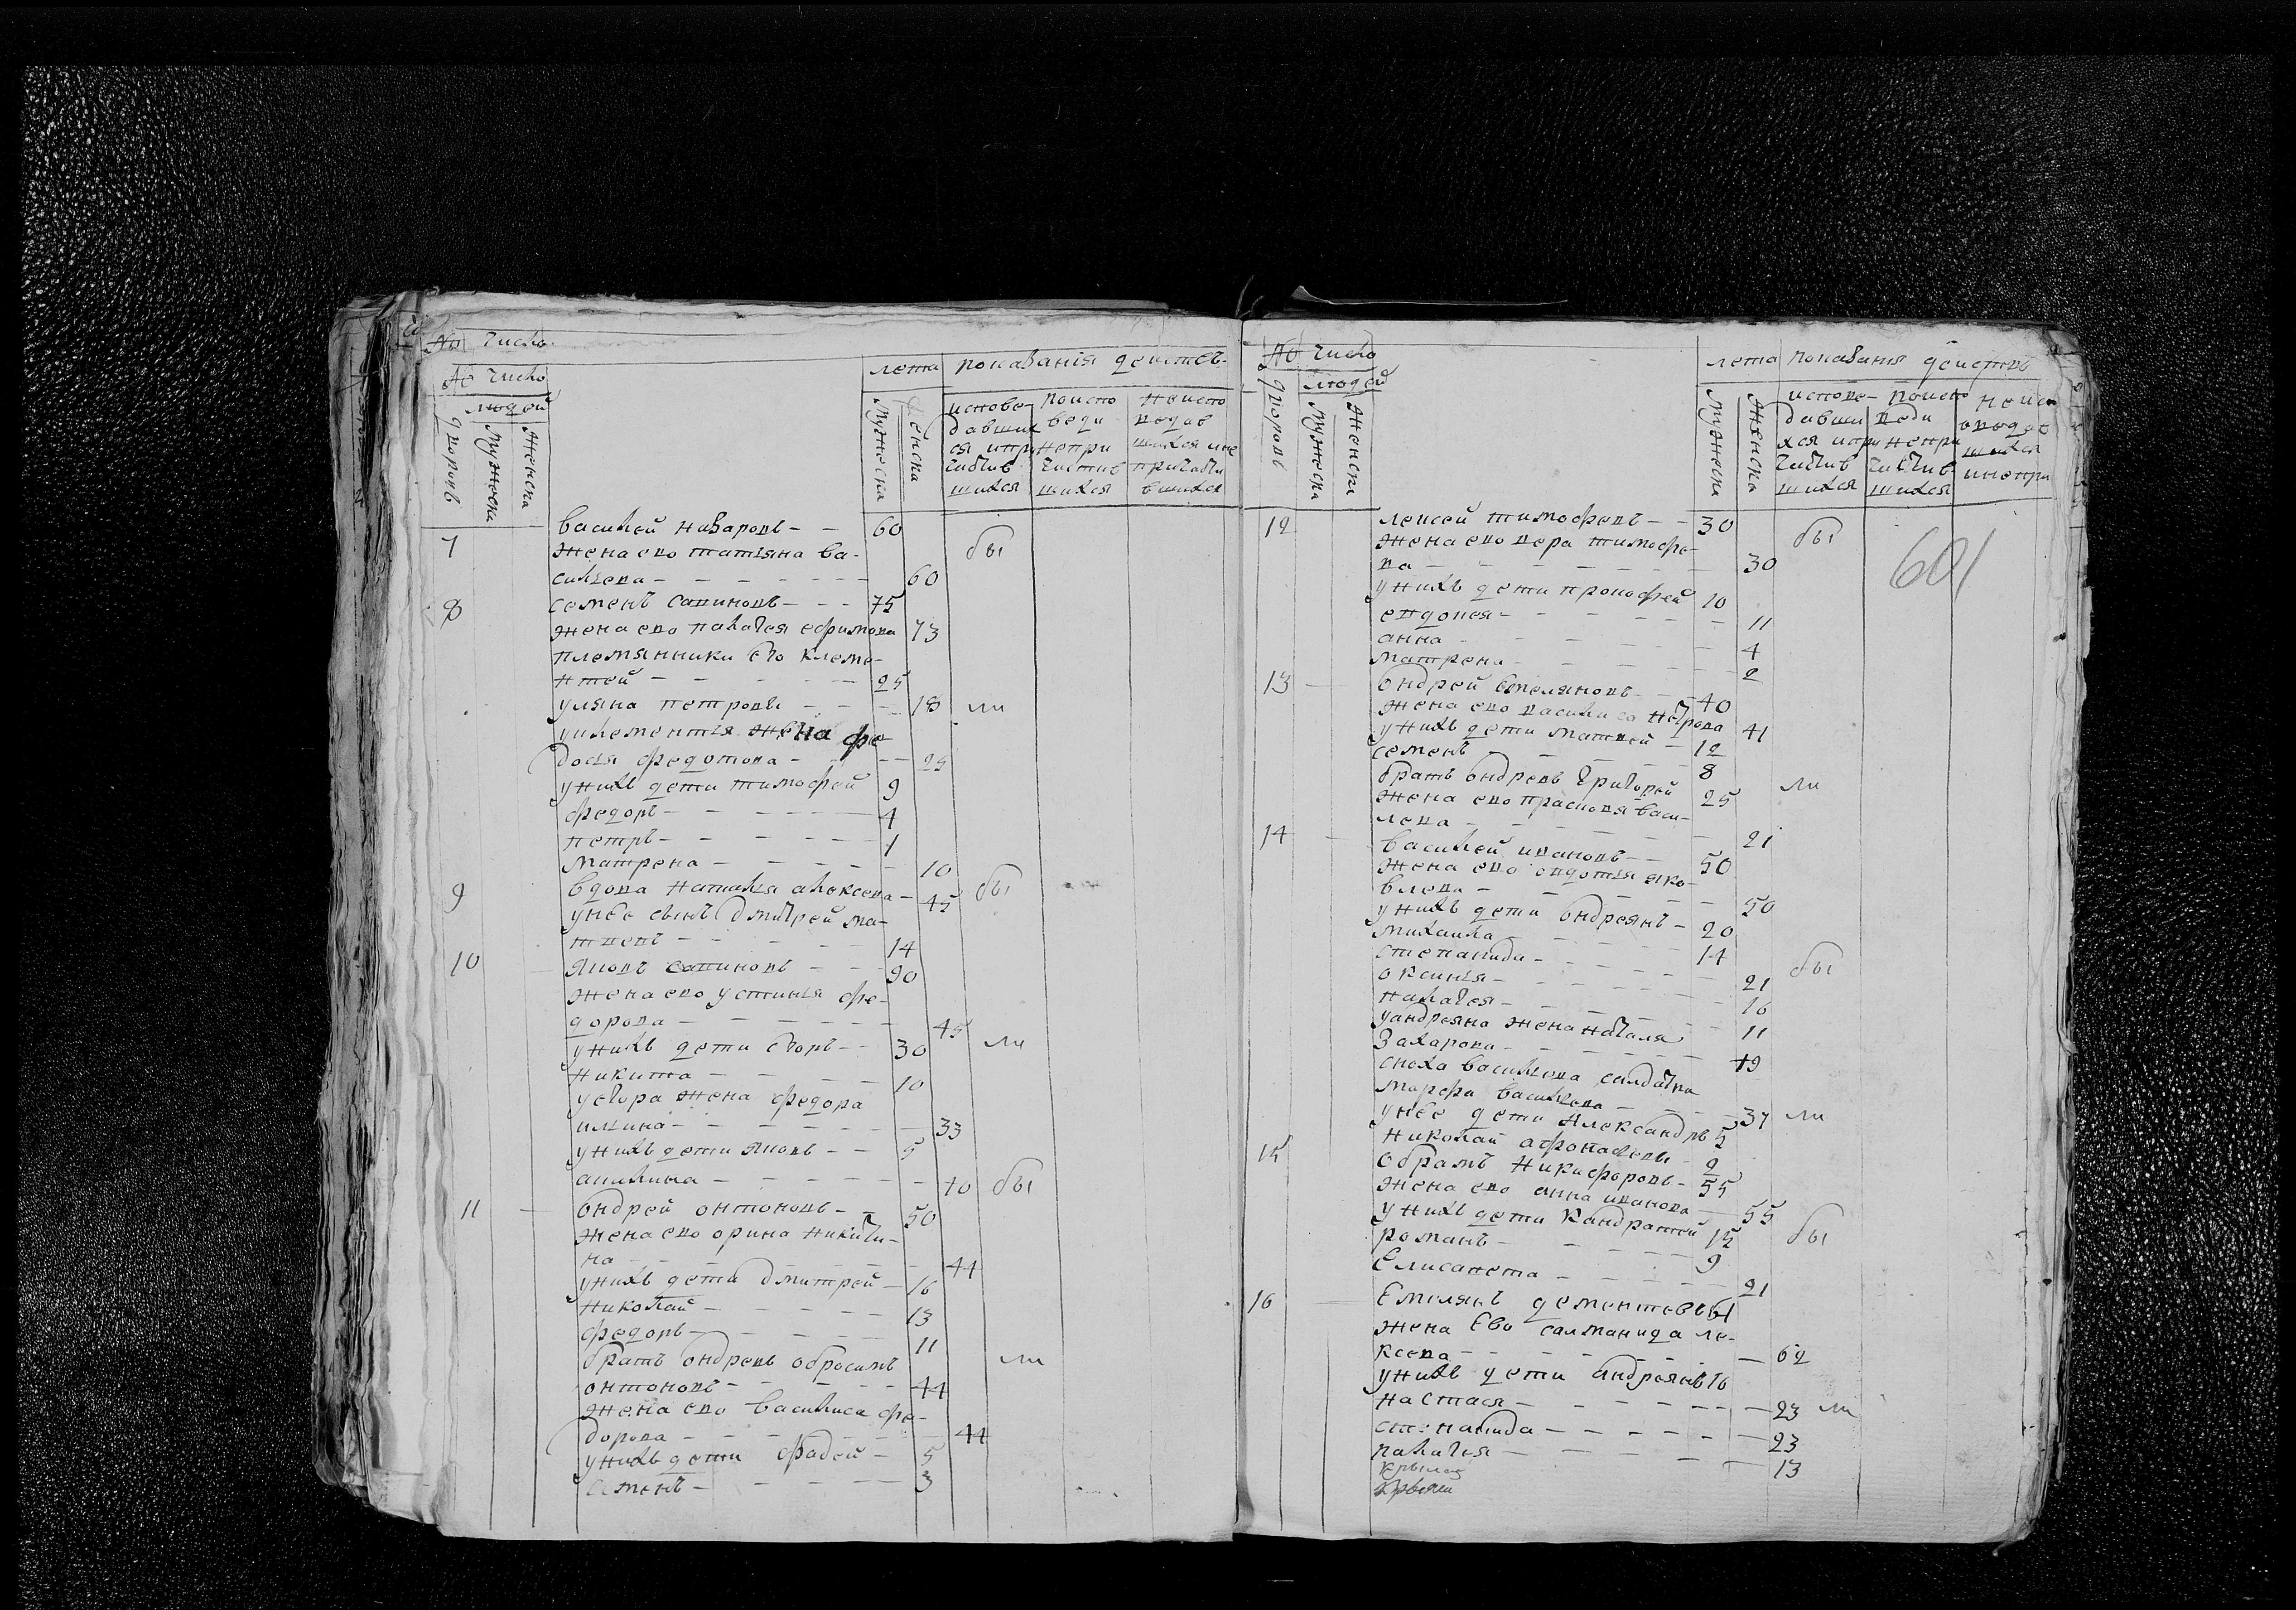 № число
№ число
людей
дворовъ
мужеска
женска
лета показанiя действъ
мужеска
женска
испове-
давших
ся и при
частив
шихся
по испо
веди
непри
частив
шихся
не испо
ведав
шихся и не
причасти
вшихся
7 василей назаровъ 60
жена ево татьяна ва- бы
сильева 60
8 семенъ савиновъ 75
жена ево палагея ефимова 73
племянники его клеме-
нтей 25
уляна петровы 18 ли
уклементья жена фе
досья федотова 25
у нихъ дети тимофей 9
федоръ 4
петръ 1
матрена 10
9 вдова наталья алексеева 45 бы
у нее сынъ дмитрей ма-
твевъ 14
10 яковъ савиновъ 90
жена ево устинья фе-
дорова 45
у нихъ дети егоръ 30 ли
никита 10
уегора жена федора
ильина 33
у нихъ дети яковъ 5
акилина 10 бы
11 ондрей онтоновъ 50
жена ево орина никити-
на 44
у нихъ дети дмитрей 16
николай 13
федоръ 11
братъ ондревъ обросимъ ли
онтоновъ 44
жена ево василиса фе-
дорова 44
у нихъ дети фадей 5
семенъ 3
№ число
дворовъ
людей
мужеска
женска
лета показания действъ
мужеска
женска
испове-
давши
хся и при
частив
шихся
по испо
веди
непри
частив
шихся
не исп
оведав
шихся
и непри
12 лексей тимофевъ 30
жена ево вера тимофе- бы
ва 30
601
у нихъ дети прокофей 10
евдокея 11
анна 4
матрена 2
13 ондрей емеляновъ 40
жена ево васили са петрова 41
у нихъ дети матвей 12
семенъ 8
братъ ондревъ григорей 25 ли
жена ево прасковя васи-
лева 21
14 василей ивановъ 50
жена ево евдотья яко-
влева 50
у нихъ дети ондреянъ 20
михаила 14
степанида 21 бы
оксинья 16
палагея 11
уандреяна жена наталя
захарова 19
сноха васильева салдатка
марфа васильева 37 ли
у нее дети александръ 5
николай афонасьевы 2
15 обрамъ никифоровъ 55
жена ево анна иванова 55
у нихъ дети кандратей 15 бы
романъ 9
елисавета 21
16 емелянъ дементевъ 61
жена ево салманида ле-
ксева 62
у нихъ дети андреянъ 16
настася 23 ли
степанида 23
палагея 13